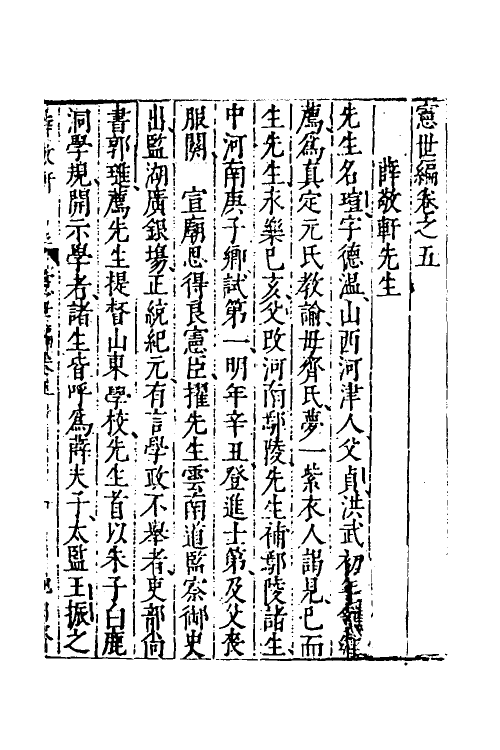 憲世編卷之五
薛敬軒先生
先生名瑄字德溫山西河津人父貞洪武初年領鄉
薦爲真定元氏教諭母齊氏夢一紫衣人謁見已而
生先生永樂己亥父改河南鄢陵先生補鄢陵諸生
中河南庚子鄉試第一明年辛丑登進士第及父喪
服闋 宣廟思得良憲臣擢先生雲南道監察御史
出監湖廣銀場正統紀元有言學政不舉者吏部尚
書郭璡薦先生提督山東學校先生首以朱子白鹿
洞學規開示學者諸生皆呼爲薛夫子太監王振之
薛敬軒 憲世編卷五